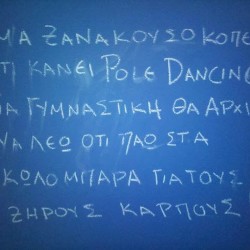 ΜΑ ΞΑΝΑΚΟΥΣΩ ΚΟΠΕ
ΤΙ ΚΑΝΕΙ POLE DANCING
ΙΑ ΓΥΜΝΑΣΤΙΚΗ ΘΑ ΑΡΧΙ
ΝΑ ΛΕΩ ΟΤΙ ΠΑΩ ΣΤΑ
ΚΩΛΟΜΠΑΡΑ ΓΙΑ ΤΟΥΣ
ΞΗΡΟΥΣ ΚΑΡΠΟΥΣ